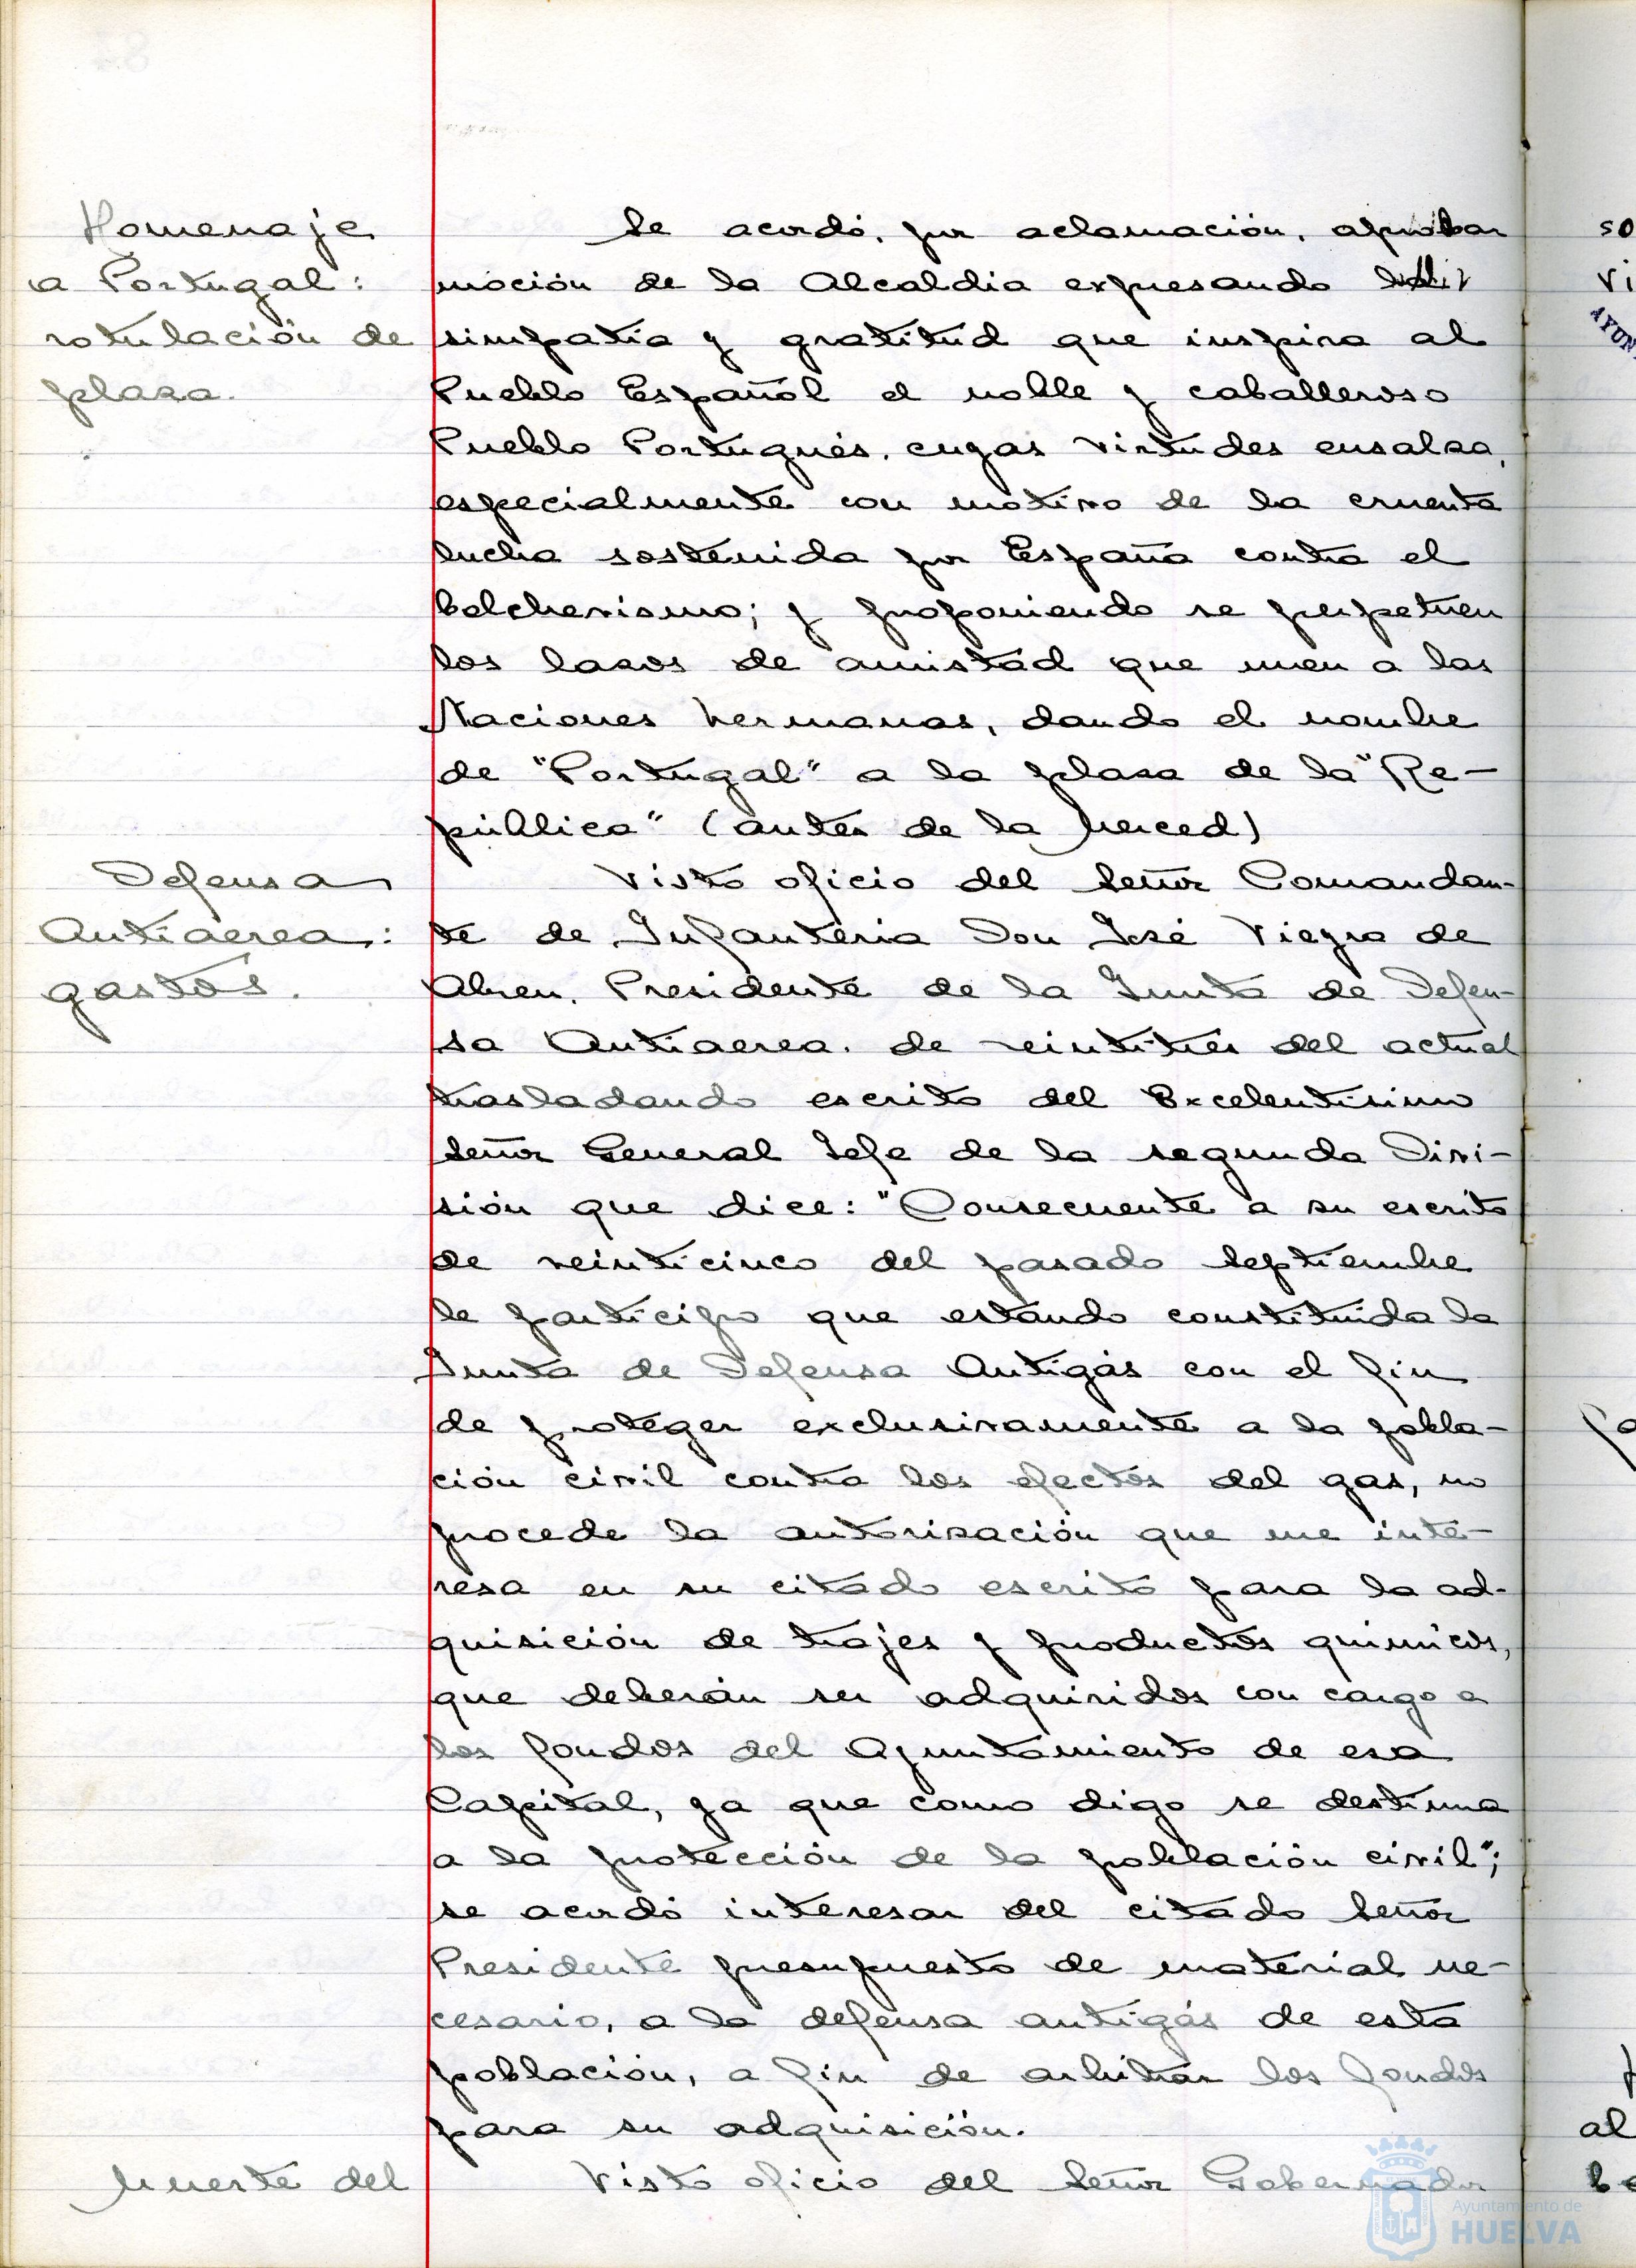 Homenaje
a Portugal:
rotulación de
plaza.
Se acordó, por aclamación, aprobar
moción de la Alcaldia expresando la
simpatia y gratitud que inspira al
Pueblo Español el noble y caballeroso
Pueblo Portugués, cuyas virtudes ensalza,
especialmente con motivo de la cruenta
lucha sostenida por España contra el
bolchevismo; y proponiendo se perpetuen
los lazos de amistad que unen a las
Naciones hermanas, dando el nombre
de "Portugal" a la plaza de la "Re-
pública" (antes de la Merced)
Defensa
Antiaerea:
gastos.
Visto oficio del Señor Comandan-
te de Infanteria Don José Viegra de
Abreu, Presidente de la Junta de Defen-
sa Antiaerea, de veintitrés del actual
trasladando escrito del Excelentísimo
Señor General Jefe de la segunda Divi-
sión que dice: "Consecuente a su escrito
de veinticinco del pasado Septiembre
le participo que estando constituida la
Junta de Defensa Antigás con el fin
de proteger exclusivamente a la pobla-
ción civil contra los efectos del gas, no
procede la autorización que me inte-
resa en su citado escrito para la ad-
quisición de trajes y productos quimicos,
que deberán ser adquiridos con cargo a
los fondos del Ayuntamiento de esa
Capital, ya que como digo se destina
a la protección de la población civil";
se acordó interesar del citado Señor
Presidente presupuesto de material ne-
cesario, a la defensa antigás de esta
población, a fin de arbitrar los fondos
para su adquisición.
Muerte del
Visto oficio del Señor Gobernador
so
vi
AYUN
al
Ayuntamiento de
HUELVA